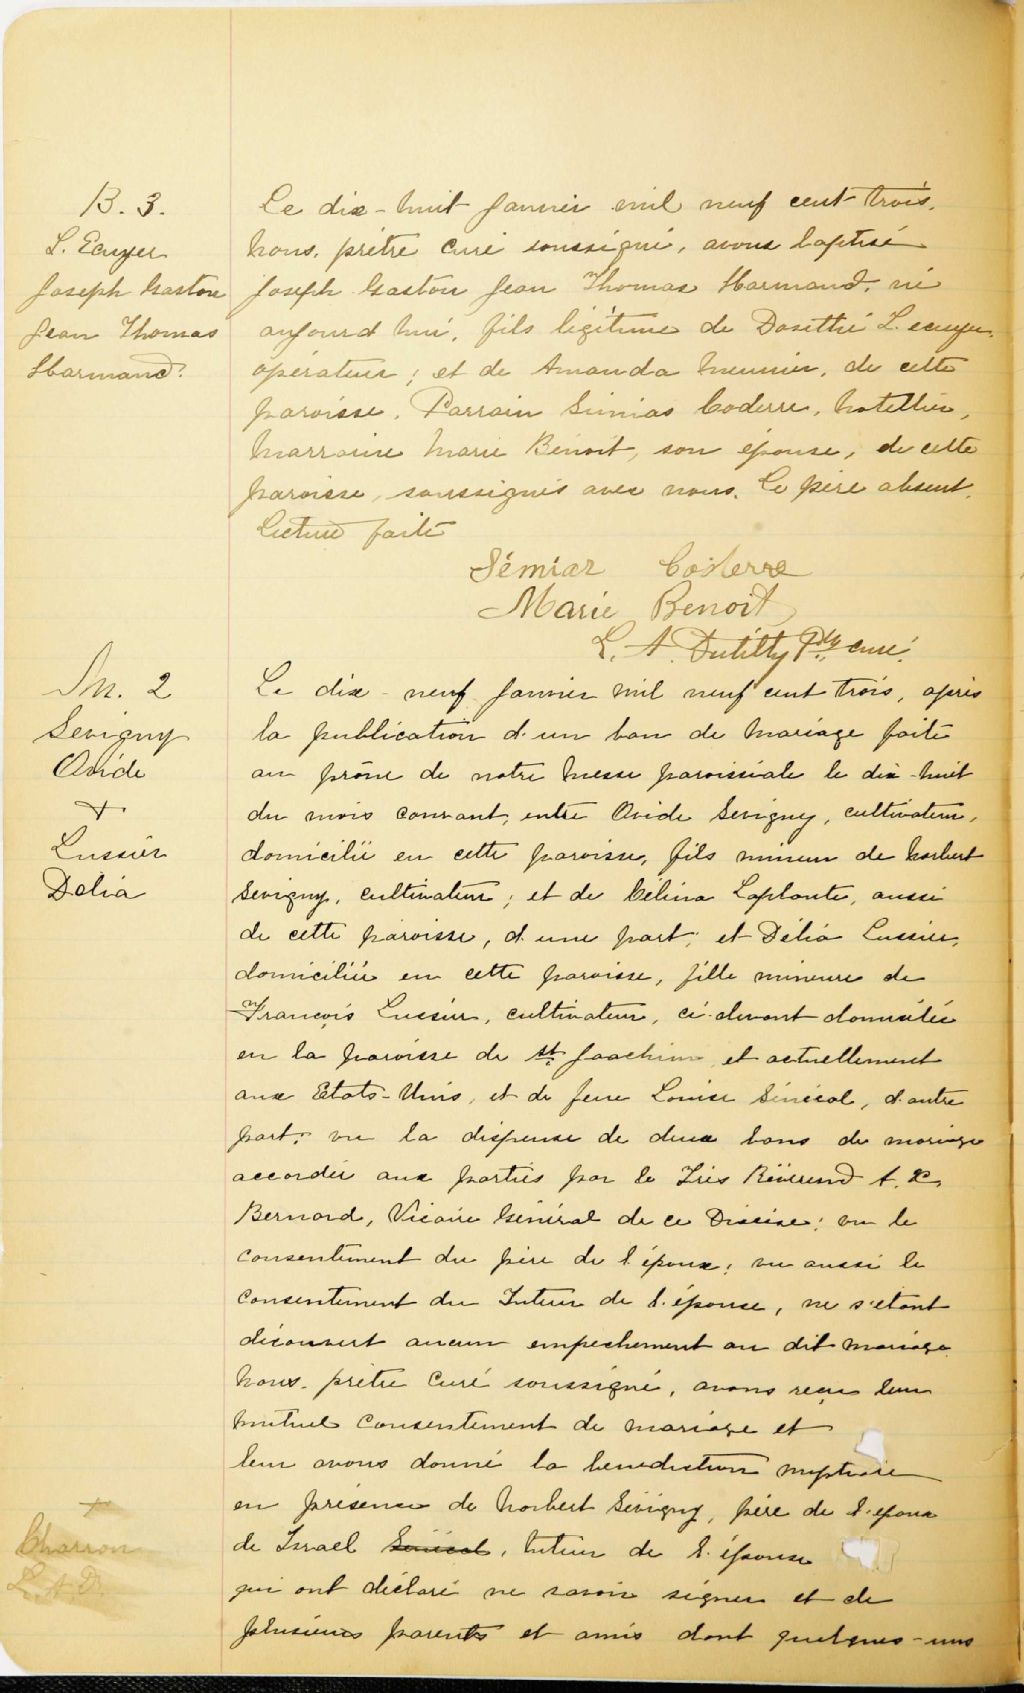 B. 3.
L. Ecuyer
Joseph Gaston
Jean Thomas
Harmand.
Le dix-huit Janvier mil neuf cent trois,
Nous, prêtre curé soussigné, avons baptisé
Joseph Gaston Jean Thomas Harmand, né
aujourd'hui, fils légitime de Dosithé L. ecuyer,
opérateur; et de Amanda Meunier, de cette
paroisse. Parrain Simias Coderre, hotellier,
Marraine Marie Benoit, son épouse, de cette
paroisse, soussignés avec nous. Le père absent.
Lecture faite
Sémiar Coderre
Marie Benoit
L. A. Dutilly Ptre curé.
M. 2
Sevigny
Ovide
+
Lussier
Delia
Le dix-neuf Janvier mil neuf cent trois, après
la publication d'un ban de mariage faite
au prône de notre messe paroissiale le dix-huit
du mois courant, entre Ovide Sevigny, cultivateur,
domicilié en cette paroisse, fils mineur de Norbert
Sevigny, cultivateur; et de Célina Laplante, aussi
de cette paroisse, d'une part; et Délia Lussier,
domiciliée en cette paroisse, fille mineure de
François Lussier, cultivateur, ci-devant domicilié
en la paroisse de St Joachim et actuellement
aux Etats-Unis, et de feue Louise Sénécal, d'autre
part; vu la dispense de deux bans de mariage
accordée aux parties par le Très Révérend A. X.
Bernard, Vicaire Général de ce Diocèse; vu le
consentement du père de l'époux; vu aussi le
consentement du Tuteur de l'épouse, ne s'étant
découvert aucun empechement au dit mariage
Nous, prêtre curé soussigné, avons reçu leur
mutuel consentement de mariage et
leur avons donné la bénédiction nuptiale
en présence de Norbert Sévigny, père de l'époux
de Israel Sénécal, tuteur de l'épouse
qui ont déclaré ne savoir signer et de
plusieurs parents et amis dont quelques-uns
+
Charron
L. A. D.